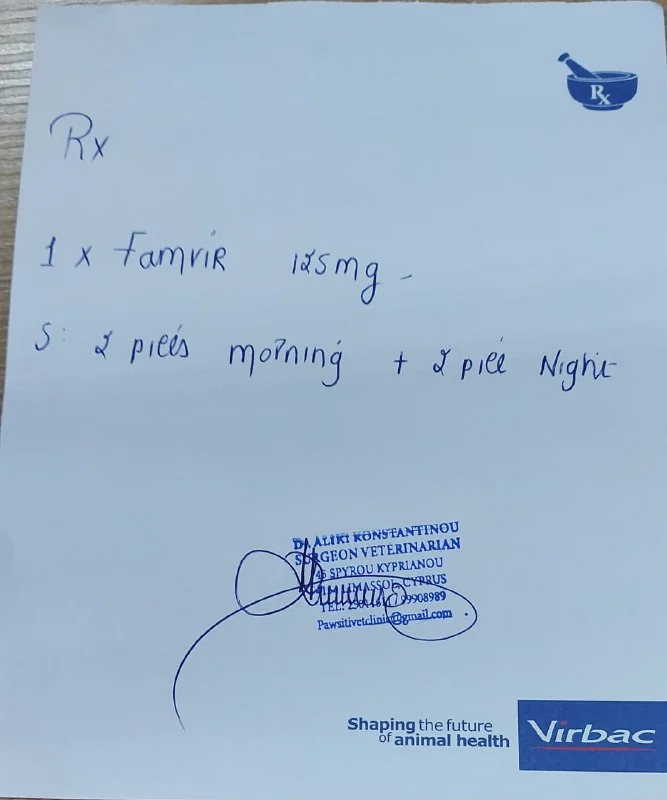 Rx
Rx
1 x Famvir 125mg -
S: 2 piees morning + 2 piee Night
DR ALIKI KONSTANTINOU
SURGEON VETERINARIAN
45 SPYROU KYPRIANOU
LIMASSOL CYPRUS
TEL: 99908989
Pawsitivetclinic@gmail.com
Shaping the future
of animal health
Virbac